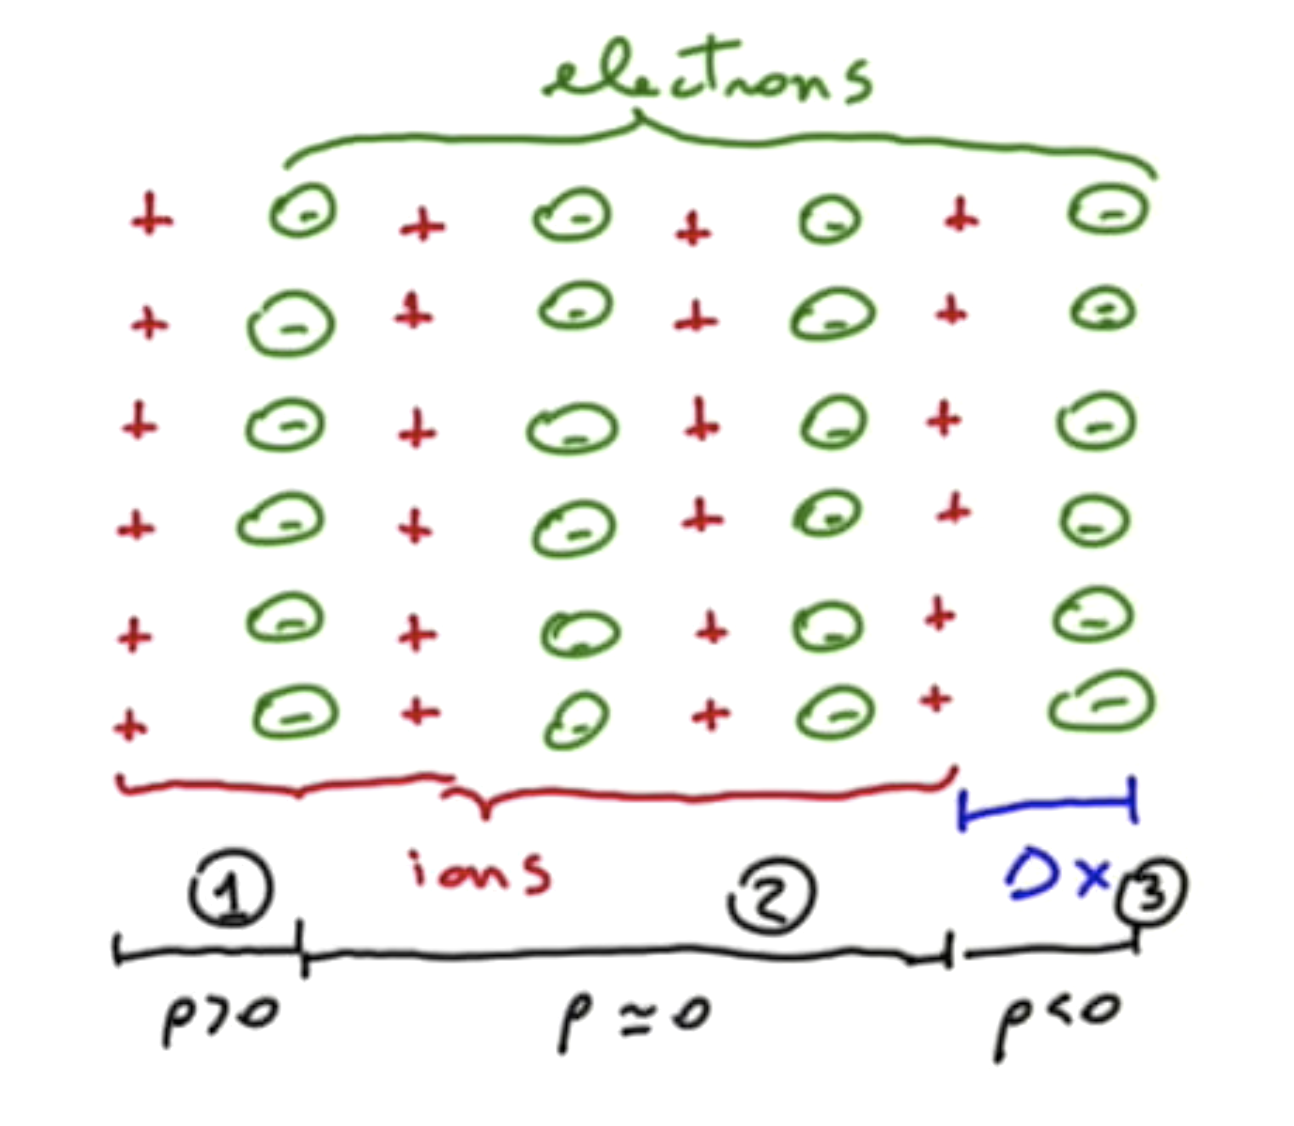 electrons
+ - + - + - + -
+ - + - + - + -
+ - + - + - + -
+ - + - + - + -
+ - + - + - + -
+ - + - + - + -
ions
Dx
1 2 3
ρ>0 ρ≃0 ρ<0